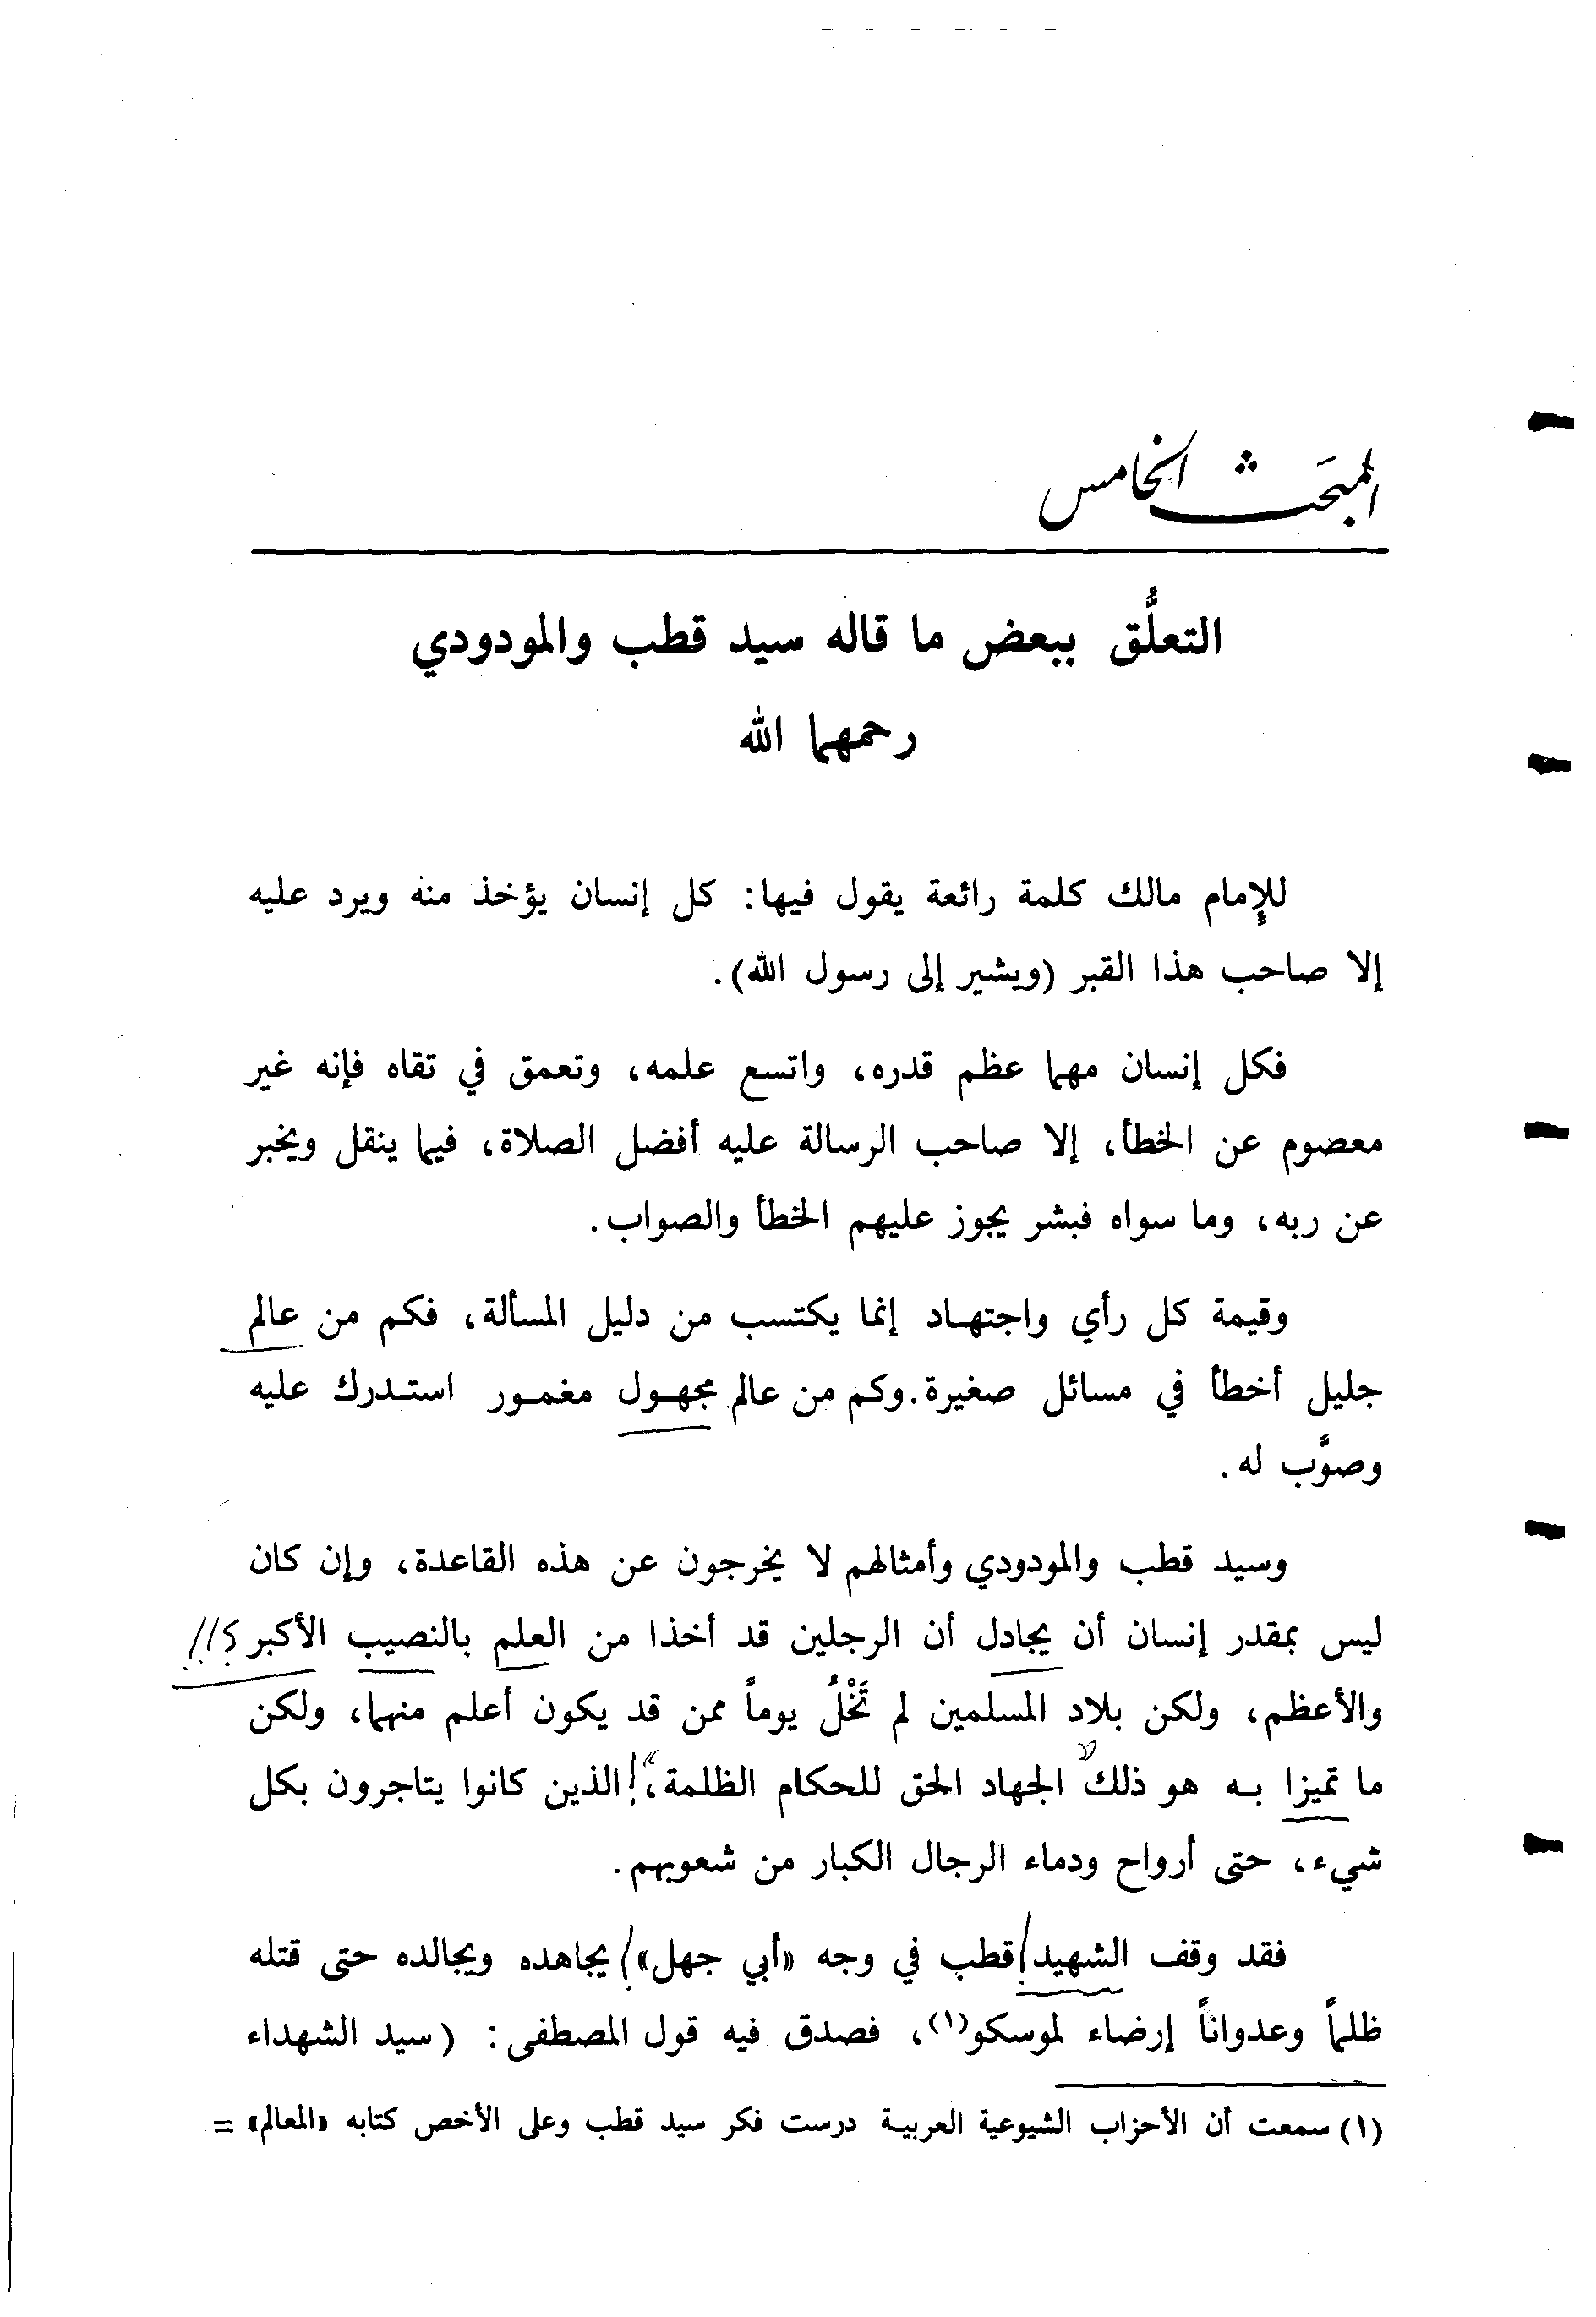 المبحث الخامس
التعلُّق ببعض ما قاله سيد قطب والمودودي
رحمهما الله
للإمام مالك كلمة رائعة يقول فيها: كل إنسان يؤخذ منه ويرد عليه
إلا صاحب هذا القبر (ويشير إلى رسول الله).
فكل إنسان مهما عظم قدره، واتسع علمه، وتعمق في تقاه فإنه غير
معصوم عن الخطأ، إلا صاحب الرسالة عليه أفضل الصلاة، فيما ينقل ويخبر
عن ربه، وما سواه فبشر يجوز عليهم الخطأ والصواب.
وقيمة كل رأي واجتهاد إنما يكتسب من دليل المسألة، فكم من عالم
جليل أخطأ في مسائل صغيرة. وكم من عالم مجهول مغمور استدرك عليه
وصوَّب له.
وسيد قطب والمودودي وأمثالهم لا يخرجون عن هذه القاعدة، وإن كان
ليس بمقدر إنسان أن يجادل أن الرجلين قد أخذا من العلم بالنصيب الأكبر ؟!!
والأعظم، ولكن بلاد المسلمين لم تَخْلُ يوماً ممن قد يكون أعلم منهما، ولكن
ما تميزا به هو ذلك الجهاد الحق للحكام الظلمة،! الذين كانوا يتاجرون بكل
شيء، حتى أرواح ودماء الرجال الكبار من شعوبهم.
فقد وقف الشهيد! قطب في وجه «أبي جهل»! يجاهده ويجالده حتى قتله
ظلماً وعدواناً إرضاء لموسكو(١)، فصدق فيه قول المصطفى: (سيد الشهداء
(١) سمعت أن الأحزاب الشيوعية العربية درست فكر سيد قطب وعلى الأخص كتابه «المعالم» =